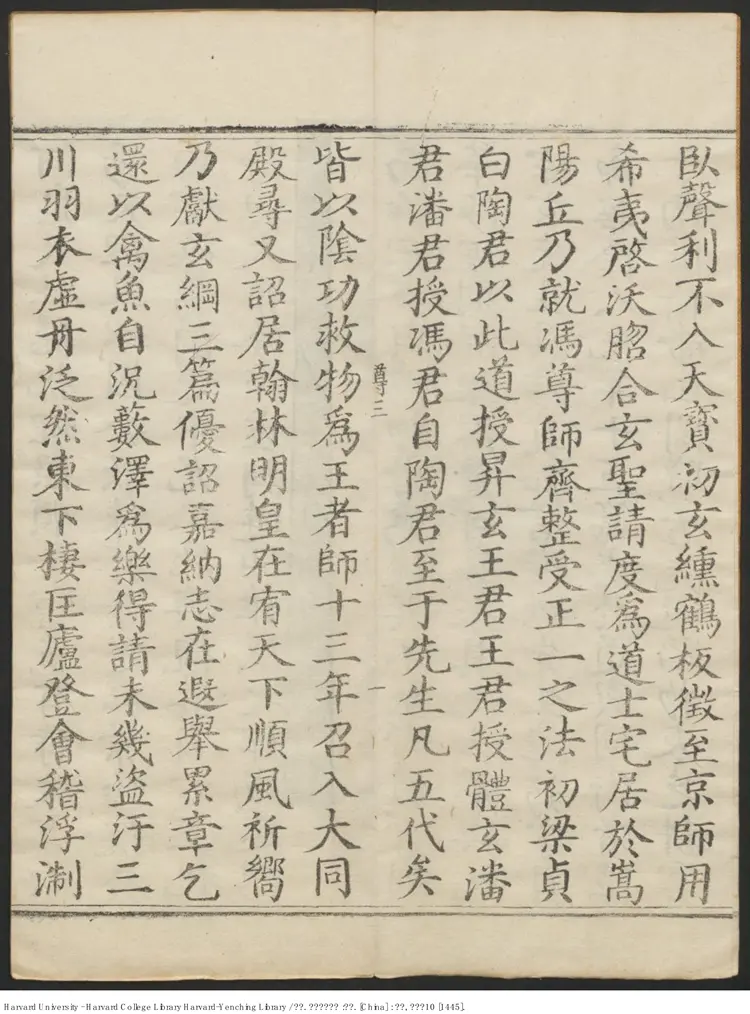 臥聲利不入天寶初玄纁鶴板徵至京師用
希夷啓沃䏚合玄聖請度爲道士宅居於嵩
陽丘乃就馮尊師齊整受正一之法初梁貞
白陶君以此道授昇玄王君王君授體玄潘
君潘君授馮君自陶君至于先生凡五代矣
尊三
一
皆以陰功救物爲王者師十三年召入大同
殿尋又詔居翰林明皇在宥天下順風祈嚮
乃獻玄綱三篇優詔嘉納志在遐舉累章乞
還以禽魚自況藪澤爲樂得請未幾盜汙三
川羽衣虛舟泛然東下棲匡廬登會稽浮淛
Harvard University - Harvard College Library Harvard-Yenching Library / ??. ?????? :??. [China] : ??, ???10 [1445].